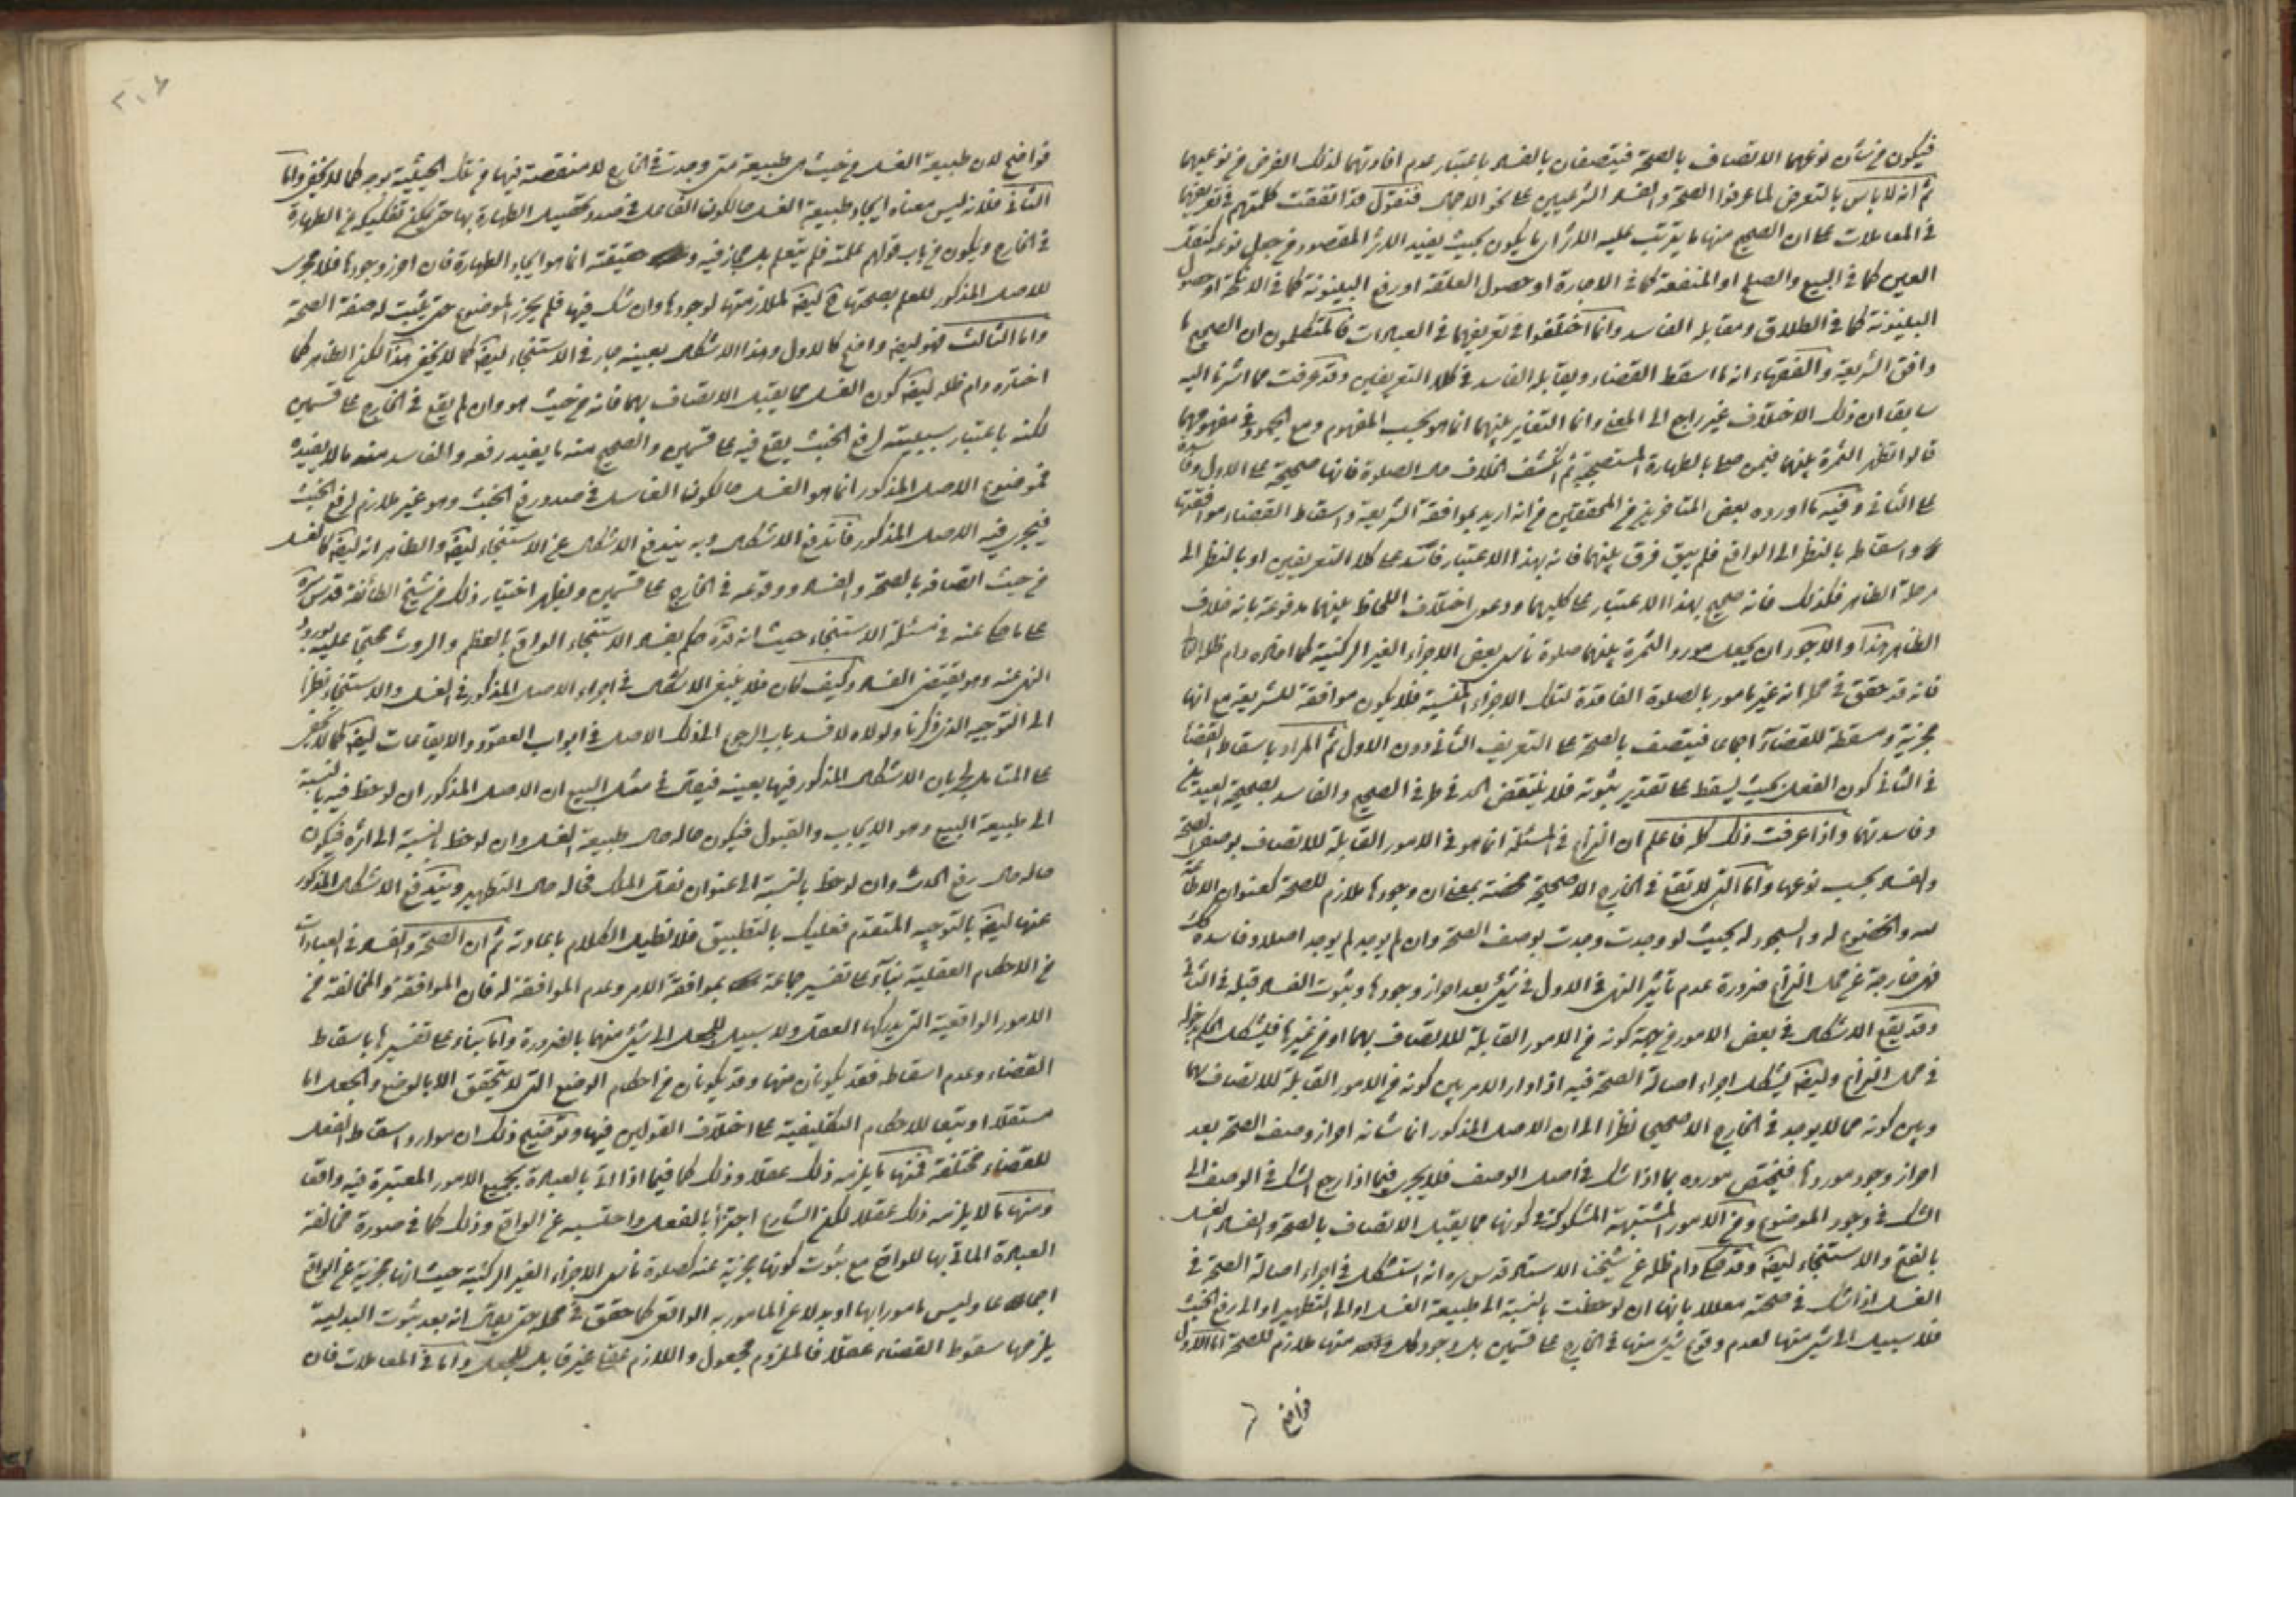 فيكون من شأن نوعهما الاتصاف بالصحة فيتصفان بالفساد باعتبار عدم افادتهما لذلك الغرض من نوعيهما
ثم انه لا باس بالتعرض لما عرفوا الصحة والفساد الشرعيين على نحو الاجمال فنقول قد اتفقت كلمتهم في تعريفهما
في المعاملات على ان الصحيح منها ما يترتب عليه الاثر اى ما يكون بحيث يفيد الاثر المقصود من جعل نوعه كنقل
العين كما في البيع والصلح او المنفعة كما في الاجارة او حصول العلقة او رفع البينونة كما في الانكحة او حصول
البينونة كما في الطلاق ومقابله الفاسد وانما اختلفوا في تعريفهما في العبادات فالمتكلمون ان الصحيح ما
وافق الشريعة والفقهاء انه ما اسقط القضاء ويقابله الفاسد في كلا التعريفين وقد عرفت مما اشرنا اليه
سابقا ان ذلك الاختلاف غير راجع الى المعنى وانما التغاير بينهما انما هو بحسب المفهوم ومع الجمود في مفهومهما
قالوا تظهر الثمرة بينهما فيمن صلى بالطهارة المستصحبة ثم انكشف الخلاف حال الصلوة فانها صحيحة على الاول وفاسدة
على الثاني وفيه ما اورده بعض المتاخرين من المحققين من انه اريد بموافقة الشريعة واسقاط القضاء موافقتها
واسقاط بالنظر الى الواقع فلم يبق فرق بينهما فانه بهذا الاعتبار فاسد على كلا التعريفين او بالنظر الى
مرحلة الظاهر فكذلك فانه صحيح بهذا الاعتبار على كليهما ودعوى اختلاف اللحاظ بينهما مدفوعة بانه خلاف
الظاهر هذا والاجود ان يجعل مورد الثمرة بينهما صلوة ناسي بعض الاجزاء الغير الركنية كما افاده دام ظله
فانه قد حقق في محله انه غير مامور بالصلوة الفاقدة لتلك الاجزاء المنسية فلا يكون موافقة للشريعة مع انها
مجزية ومسقطة للقضاء اجماعا فيتصف بالصحة على التعريف الثاني دون الاول ثم المراد باسقاط القضاء
في الثاني كون الفعل بحيث يسقط على تقدير ثبوته فلا ينتقض الحد في طرفي الصحيح والفاسد بصحيحة العيدين
وفاسدتهما واذا عرفت ذلك كله فاعلم ان النزاع في المسئلة انما هو في الامور القابلة للاتصاف بوصفى الصحة
والفساد بحسب نوعها واما التي لا تقع في الخارج الا صحيحة محضة بمعنى ان وجودها ملازم للصحة كعنوان الاطاعة
لله والخضوع له والسجود له بحيث لو وجدت وجدت بوصف الصحة وان لم يوجد لم يوجد اصلا او فاسدة كك
فهي خارجة عن محل النزاع ضرورة عدم تأثير النهى في الاول في شيئ بعد احراز وجودها وثبوت الفساد قبله في الثاني
وقد يقع الاشكال في بعض الامور من جهة كونه من الامور القابلة للاتصاف بهما او من غيرها فيشكل الحكم بدخوله
في محل النزاع وايضا يشكل اجراء اصالة الصحة فيه اذا دار الامر بين كونه من الامور القابلة للاتصاف بهما
وبين كونه مما لا يوجد في الخارج الا صحيحا نظرا الى ان الاصل المذكور انما شانه احراز وصف الصحة بعد
احراز وجود موردها فيختص مورده بما اذا شك في اصل الوصف فلا يجرى فيما اذا رجع الشك في الوصف الى
الشك في وجود الموضوع ومن الامور المشتبهة المشكوكة في كونها مما يقبل الاتصاف بالصحة والفساد الغسل
بالفتح والاستنجاء ايضا وقد حكى دام ظله عن شيخنا الاستاد قدس سره انه استشكل في اجراء اصالة الصحة في
الغسل اذا شك في صحته معللا بانها ان لوحظت بالنسبة الى طبيعة الغسل او الى التطهير او الى رفع الخبث
فلا سبيل الى شئ منها لعدم وقوع شئ منها في الخارج على قسمين بل وجود كل واحد منها ملازم للصحة اما الاول
فواضح
فواضح لان طبيعة الغسل من حيث هى طبيعة متى وجدت في الخارج لا منقصة فيها من تلك الحيثية بوجه كما لا يخفى واما
الثاني فلانه ليس معناه ايجاد طبيعة الغسل حالكون الفاعل في صدد تحصيل الطهارة بها حتى يمكن تفكيكه عن الطهارة
في الخارج ويكون من باب قولهم علمته فلم يتعلم بل مجاز فيه وحقيقته انما هو ايجاد الطهارة فان احرز وجودها فلا مجرى
للاصل المذكور للعلم بصحتها ح ايضا لملازمتها لوجودها وان شك فيها فلم يحرز الموضوع حتى يثبت له صفة الصحة
واما الثالث فهو ايضا واضح كالاول وهذا الاشكال بعينه جار في الاستنجاء ايضا كما لا يخفى هذا لكن الظاهر كما
اختاره دام ظله ايضا كون الغسل مما يقبل الاتصاف بهما فانه من حيث هو وان لم يقع في الخارج على قسمين
لكنه باعتبار سببيته لرفع الخبث يقع فيه على قسمين والصحيح منه ما يفيد رفعه والفاسد منه ما لا يفيده
فموضوع الاصل المذكور انما هو الغسل حالكون الغاسل في صدد رفع الخبث وهو غير ملازم لرفع الخبث
فيجرى فيه الاصل المذكور فاندفع الاشكال وبه يندفع الاشكال عن الاستنجاء ايضا والظاهر انه ايضا كالغسل
من حيث اتصافه بالصحة والفساد ووقوعه في الخارج على قسمين ويظهر اختيار ذلك من شيخ الطائفة قدس سره
على ما حكى عنه في مسئلة الاستنجاء حيث انه قده حكم بفساد الاستنجاء الواقع بالعظم والروث محتجا عليه بورود
النهى عنه وهو يقتضى الفساد وكيف كان فلا ينبغى الاشكال في اجراء الاصل المذكور في الغسل والاستنجاء نظرا
الى التوجيه الذى ذكرنا ولولاه لانسد باب الرجوع الى ذلك الاصل في ابواب العقود والايقاعات ايضا كما لا يخفى
على المتامل لجريان الاشكال المذكور فيها بعينه فيقال في مثل البيع ان الاصل المذكور ان لوحظ فيه بالنسبة
الى طبيعة البيع وهو الايجاب والقبول فيكون حاله حال طبيعة الغسل وان لوحظ بالنسبة الى اثره فيكون
حاله حال رفع الحدث وان لوحظ بالنسبة الى عنوان نقل الملك فحاله حال التطهير ويندفع الاشكال المذكور
عنها ايضا بالتوجيه المتقدم فعليك بالتطبيق فلا نطيل الكلام باعادته ثم ان الصحة والفساد في العبادات
من الاحكام العقلية بناء على تفسير جماعة بموافقة الامر وعدم الموافقة له فان الموافقة والمخالفة من
الامور الواقعية التى يدركها العقل ولا سبيل للجعل الى شئ منهما بالضرورة واما بناء على تفسيرها باسقاط
القضاء وعدم اسقاطه فقد يكونان منها وقد يكونان من احكام الوضع التى لا يتحقق الا بالوضع والجعل اما
مستقلا او تبعا للاحكام التكليفية على اختلاف القولين فيها وتوضيح ذلك ان موارد اسقاط الفعل
للقضاء مختلفة فمنها ما يلزمه ذلك عقلا وذلك كما فيما اذا اتى بالعبادة بجميع الامور المعتبرة فيه واقعا
ومنها ما لا يلزمه ذلك عقلا لكن الشارع اجتزأ بالفعل واحتسبه عن الواقع وذلك كما في صورة مخالفة
العبادة الماتي بها للواقع مع ثبوت كونها مجزية عنه كصلوة ناسي الاجزاء الغير الركنية حيث انها مجزية عن الواقع
اجماعا وليس مامورا بها او بدلا عن المامور به الواقعى كما حقق في محله حتى يقال انه بعد ثبوت البدلية
يلزمها سقوط القضاء عقلا فالملزوم مجعول واللازم عقلى غير قابل للجعل واما في المعاملات فان